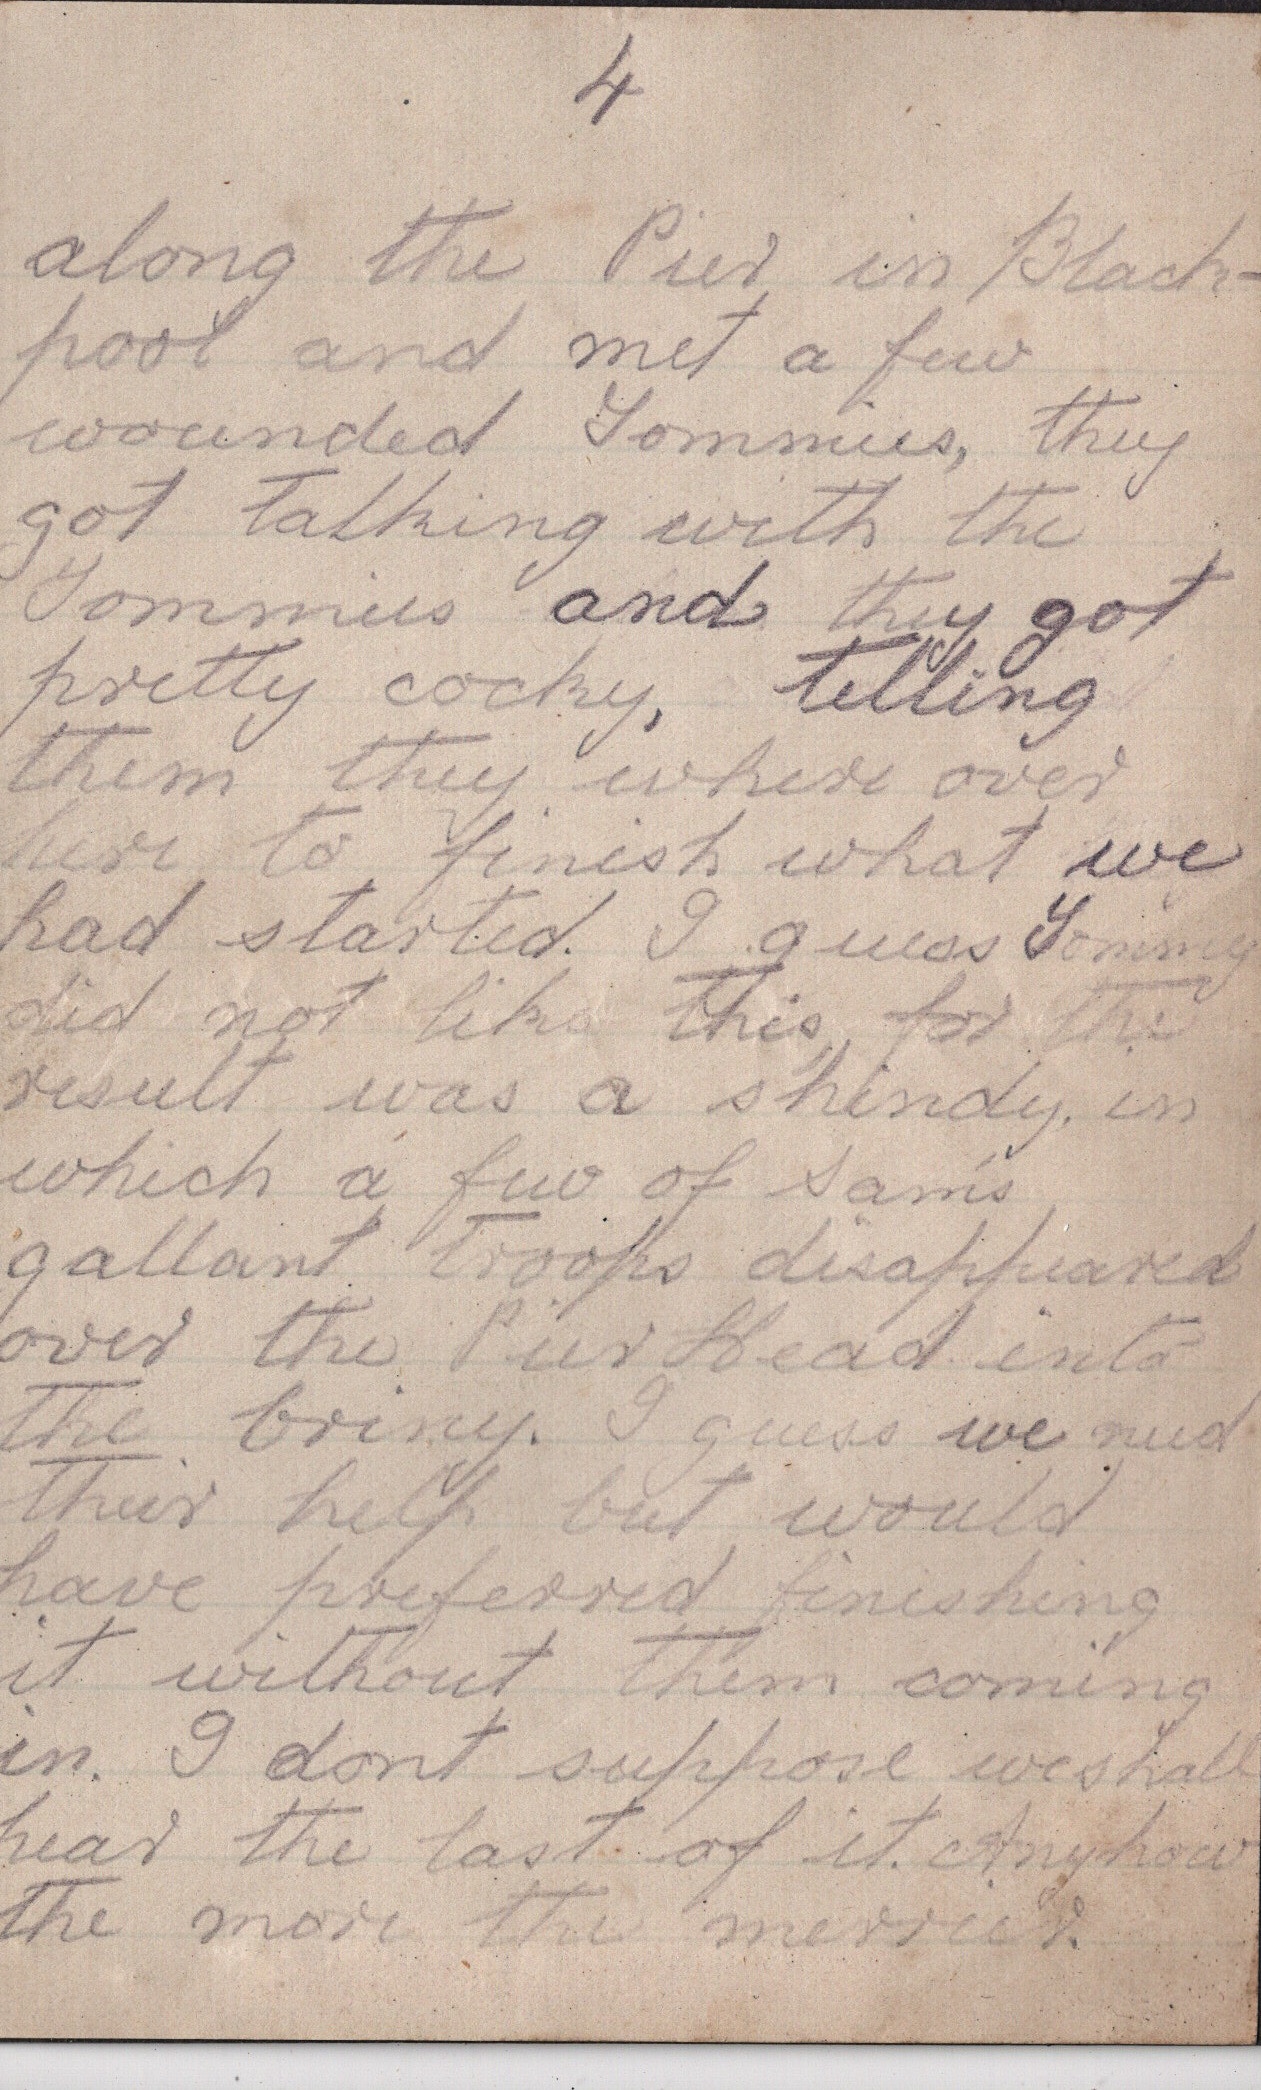 4
along the Pier in Black-
pool and met a few
wounded Tommies, they
got talking with the
Tommies and they got
pretty cocky, telling
them they where over
here to finish what we
had started. I guess Tommy
did not like this, for the
result was a shindy, in
which a few of Sam's
gallant troops disappeared
over the Pier Head into
the briny. I guess we need
their help but would
have preferred finishing
it without them coming
in. I dont suppose we shall
hear the last of it. Anyhow
the more the merrier.